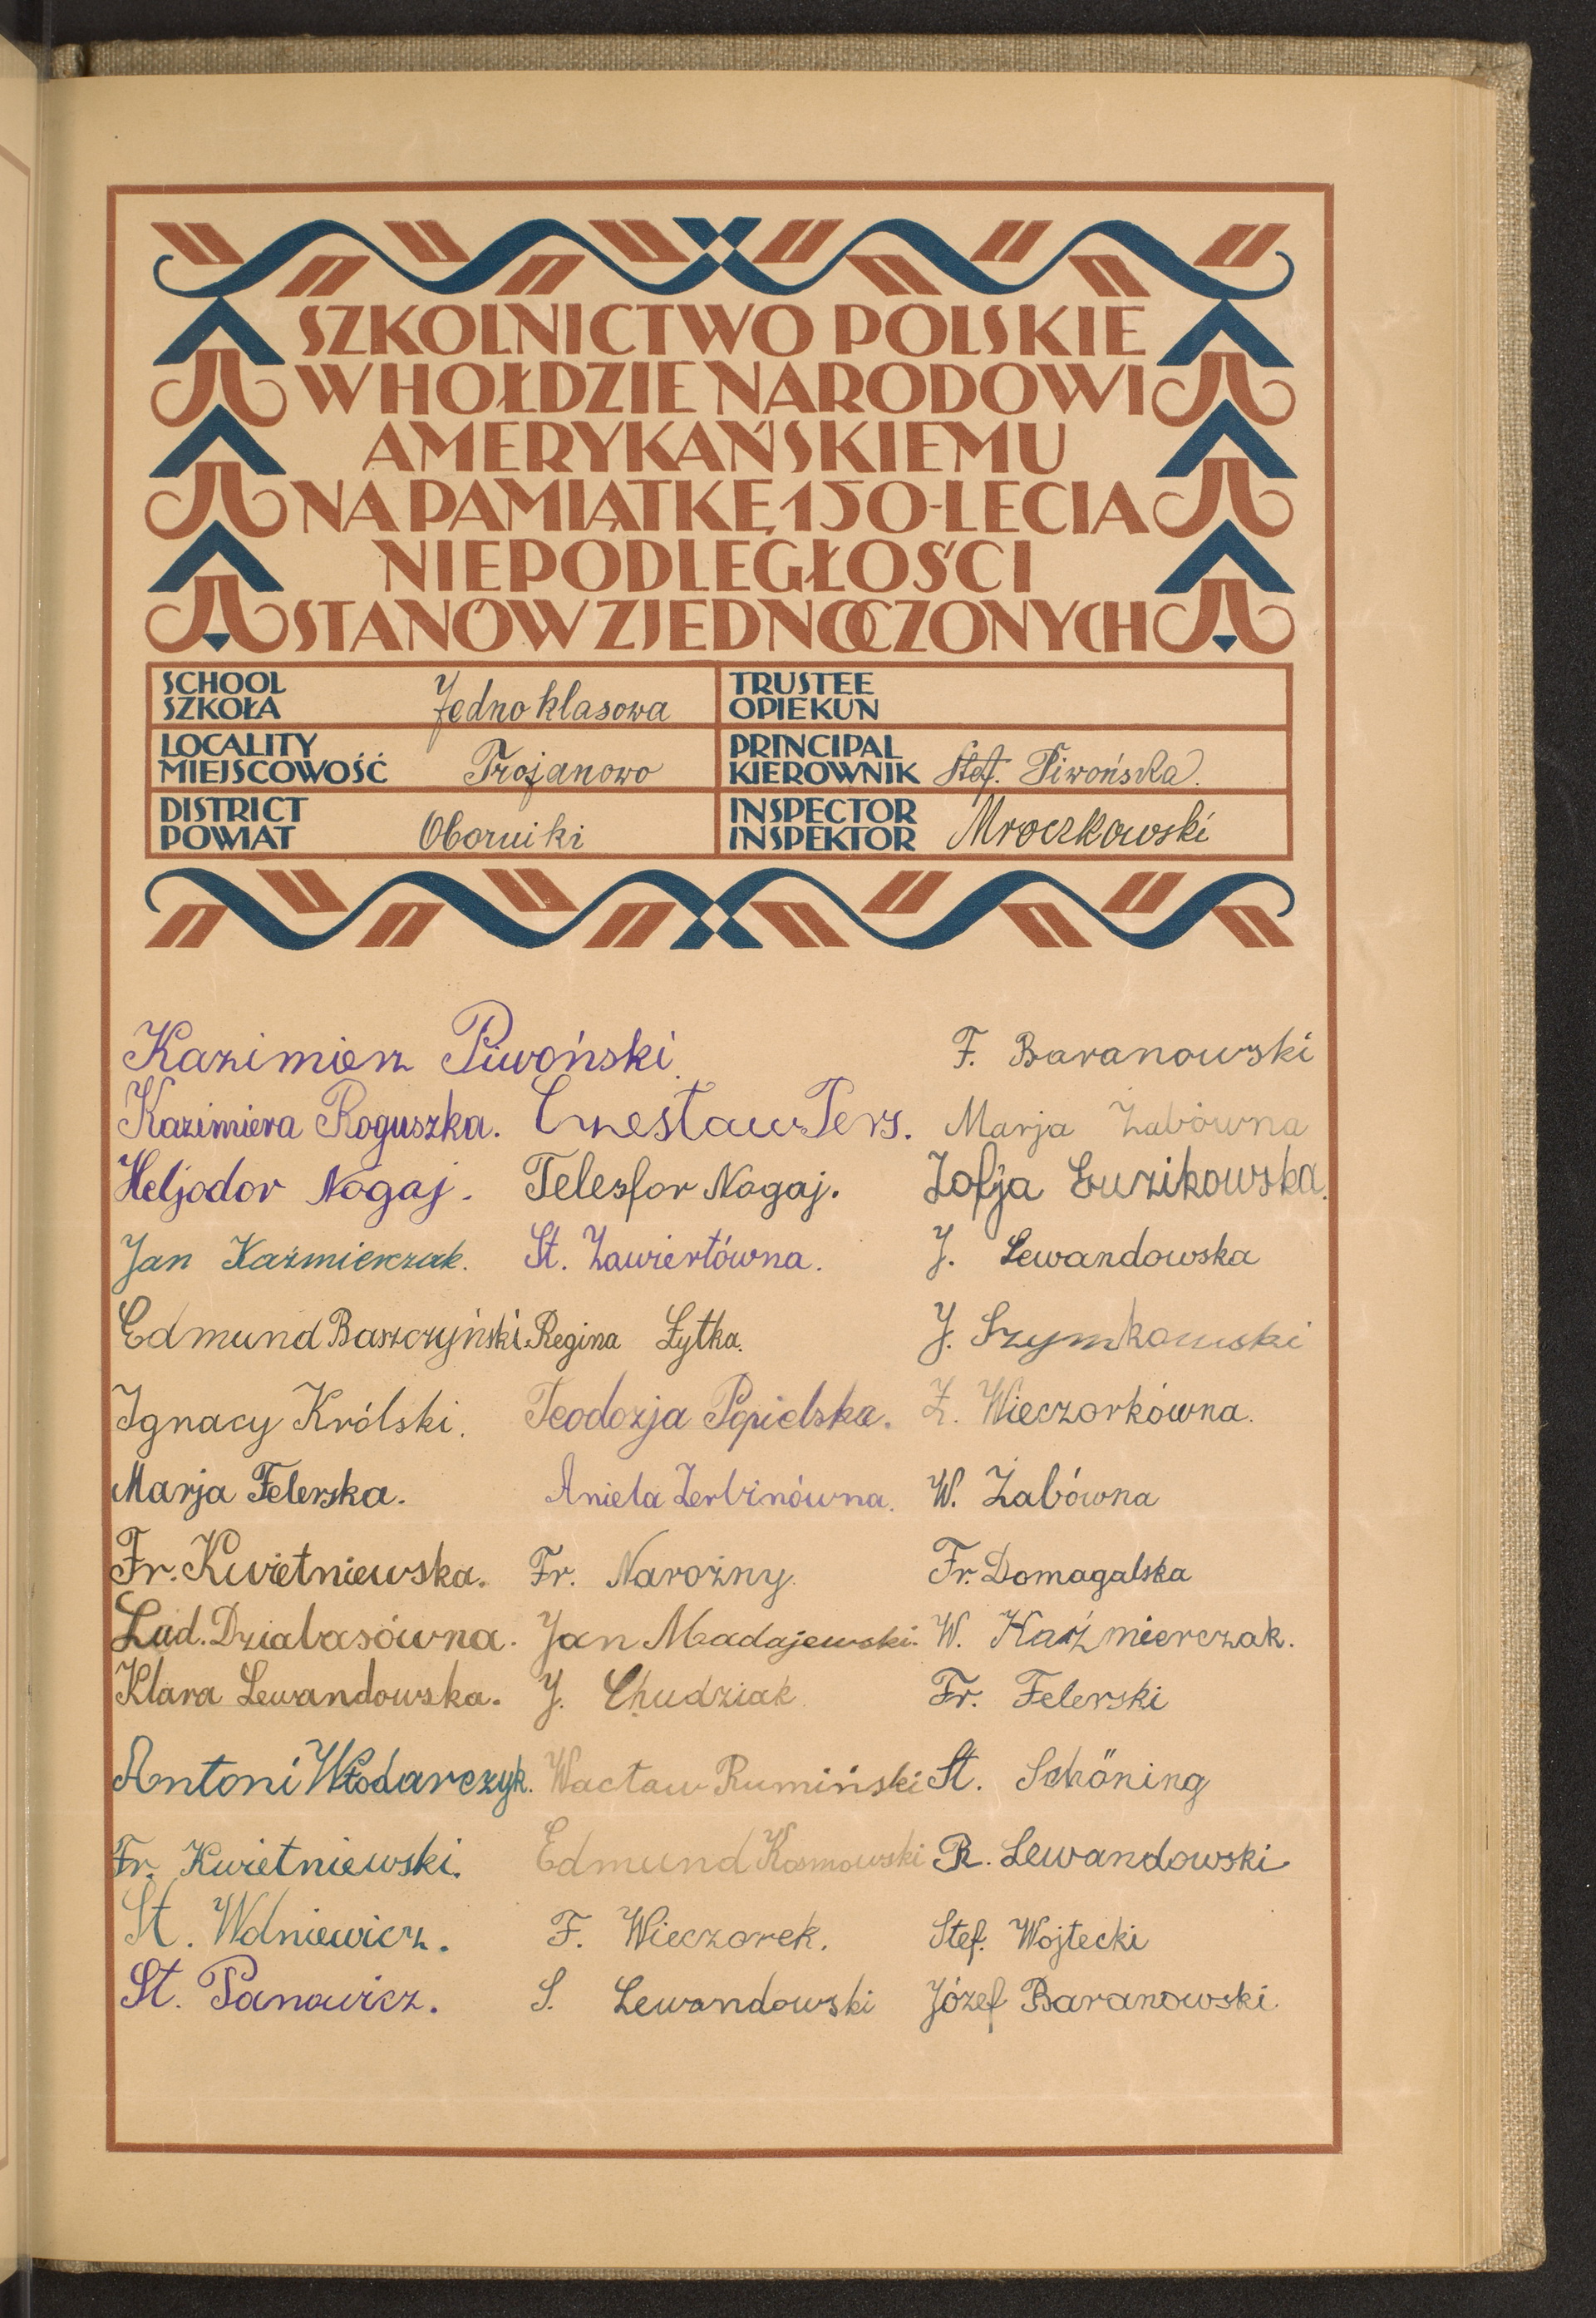 SZKOLNICTWO POLSKIE
W HOŁDZIE NARODOWI
AMERYKAŃSKIEMU
NA PAMIĄTKĘ 150-LECIA
NIEPODLEGŁOŚCI
STANÓW ZJEDNOCZONYCH
SCHOOL
SZKOŁA Jednoklasowa
TRUSTEE
OPIEKUN
LOCALITY
MIEJSCOWOŚĆ Trojanowo
PRINCIPAL
KIEROWNIK Stef. Piwońska.
DISTRICT
POWIAT Oborniki
INSPECTOR
INSPEKTOR Mroczkowski
Kazimierz Piwoński. F. Baranowski
Kazimiera Roguszka. Czesław Pers. Marja Żabówna
Heljodor Nogaj. Telesfor Nogaj. Zofja Guzikowska.
Jan Kaźmierczak. St. Zawiertówna. J. Lewandowska
Edmund Baszczyński Regina Łytka. J. Szymkowski
Ignacy Królski. Teodozja Popielska. Z. Wieczorkówna.
Marja Felerska. Aniela Zerbinówna. W. Żabówna
Fr. Kwietniewska. Fr. Narożny. Fr. Domagalska
Lud. Dziabasówna. Jan Madajewski. W. Kaźmierczak.
Klara Lewandowska. J. Chudziak. Fr. Felerski
Antoni Włodarczyk. Wacław Rumiński St. Schöning
Fr. Kwietniewski. Edmund Kosmowski R. Lewandowski
St. Wolniewicz. F. Wieczorek. Stef. Wojtecki
St. Panowicz. S. Lewandowski Józef Baranowski.